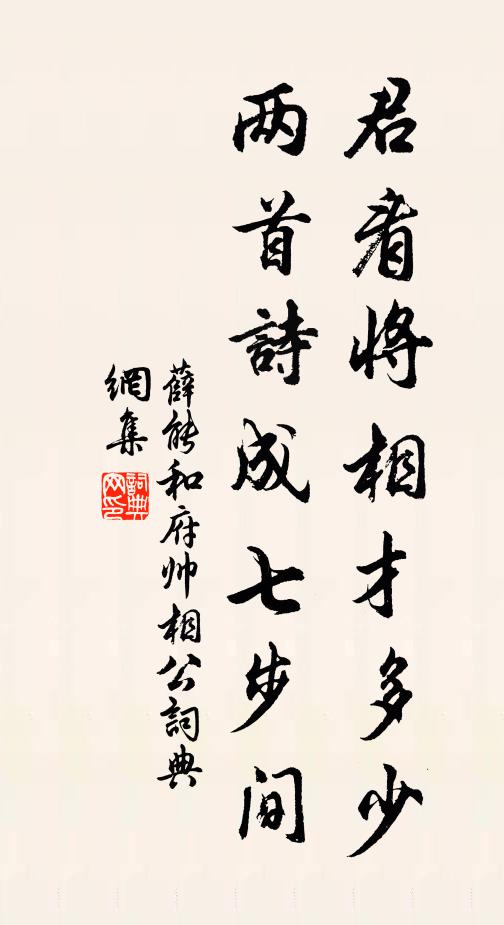 君看将相才多少
两首詩成七步间
薛能和府帅相公詞典
網集
詞典
网印